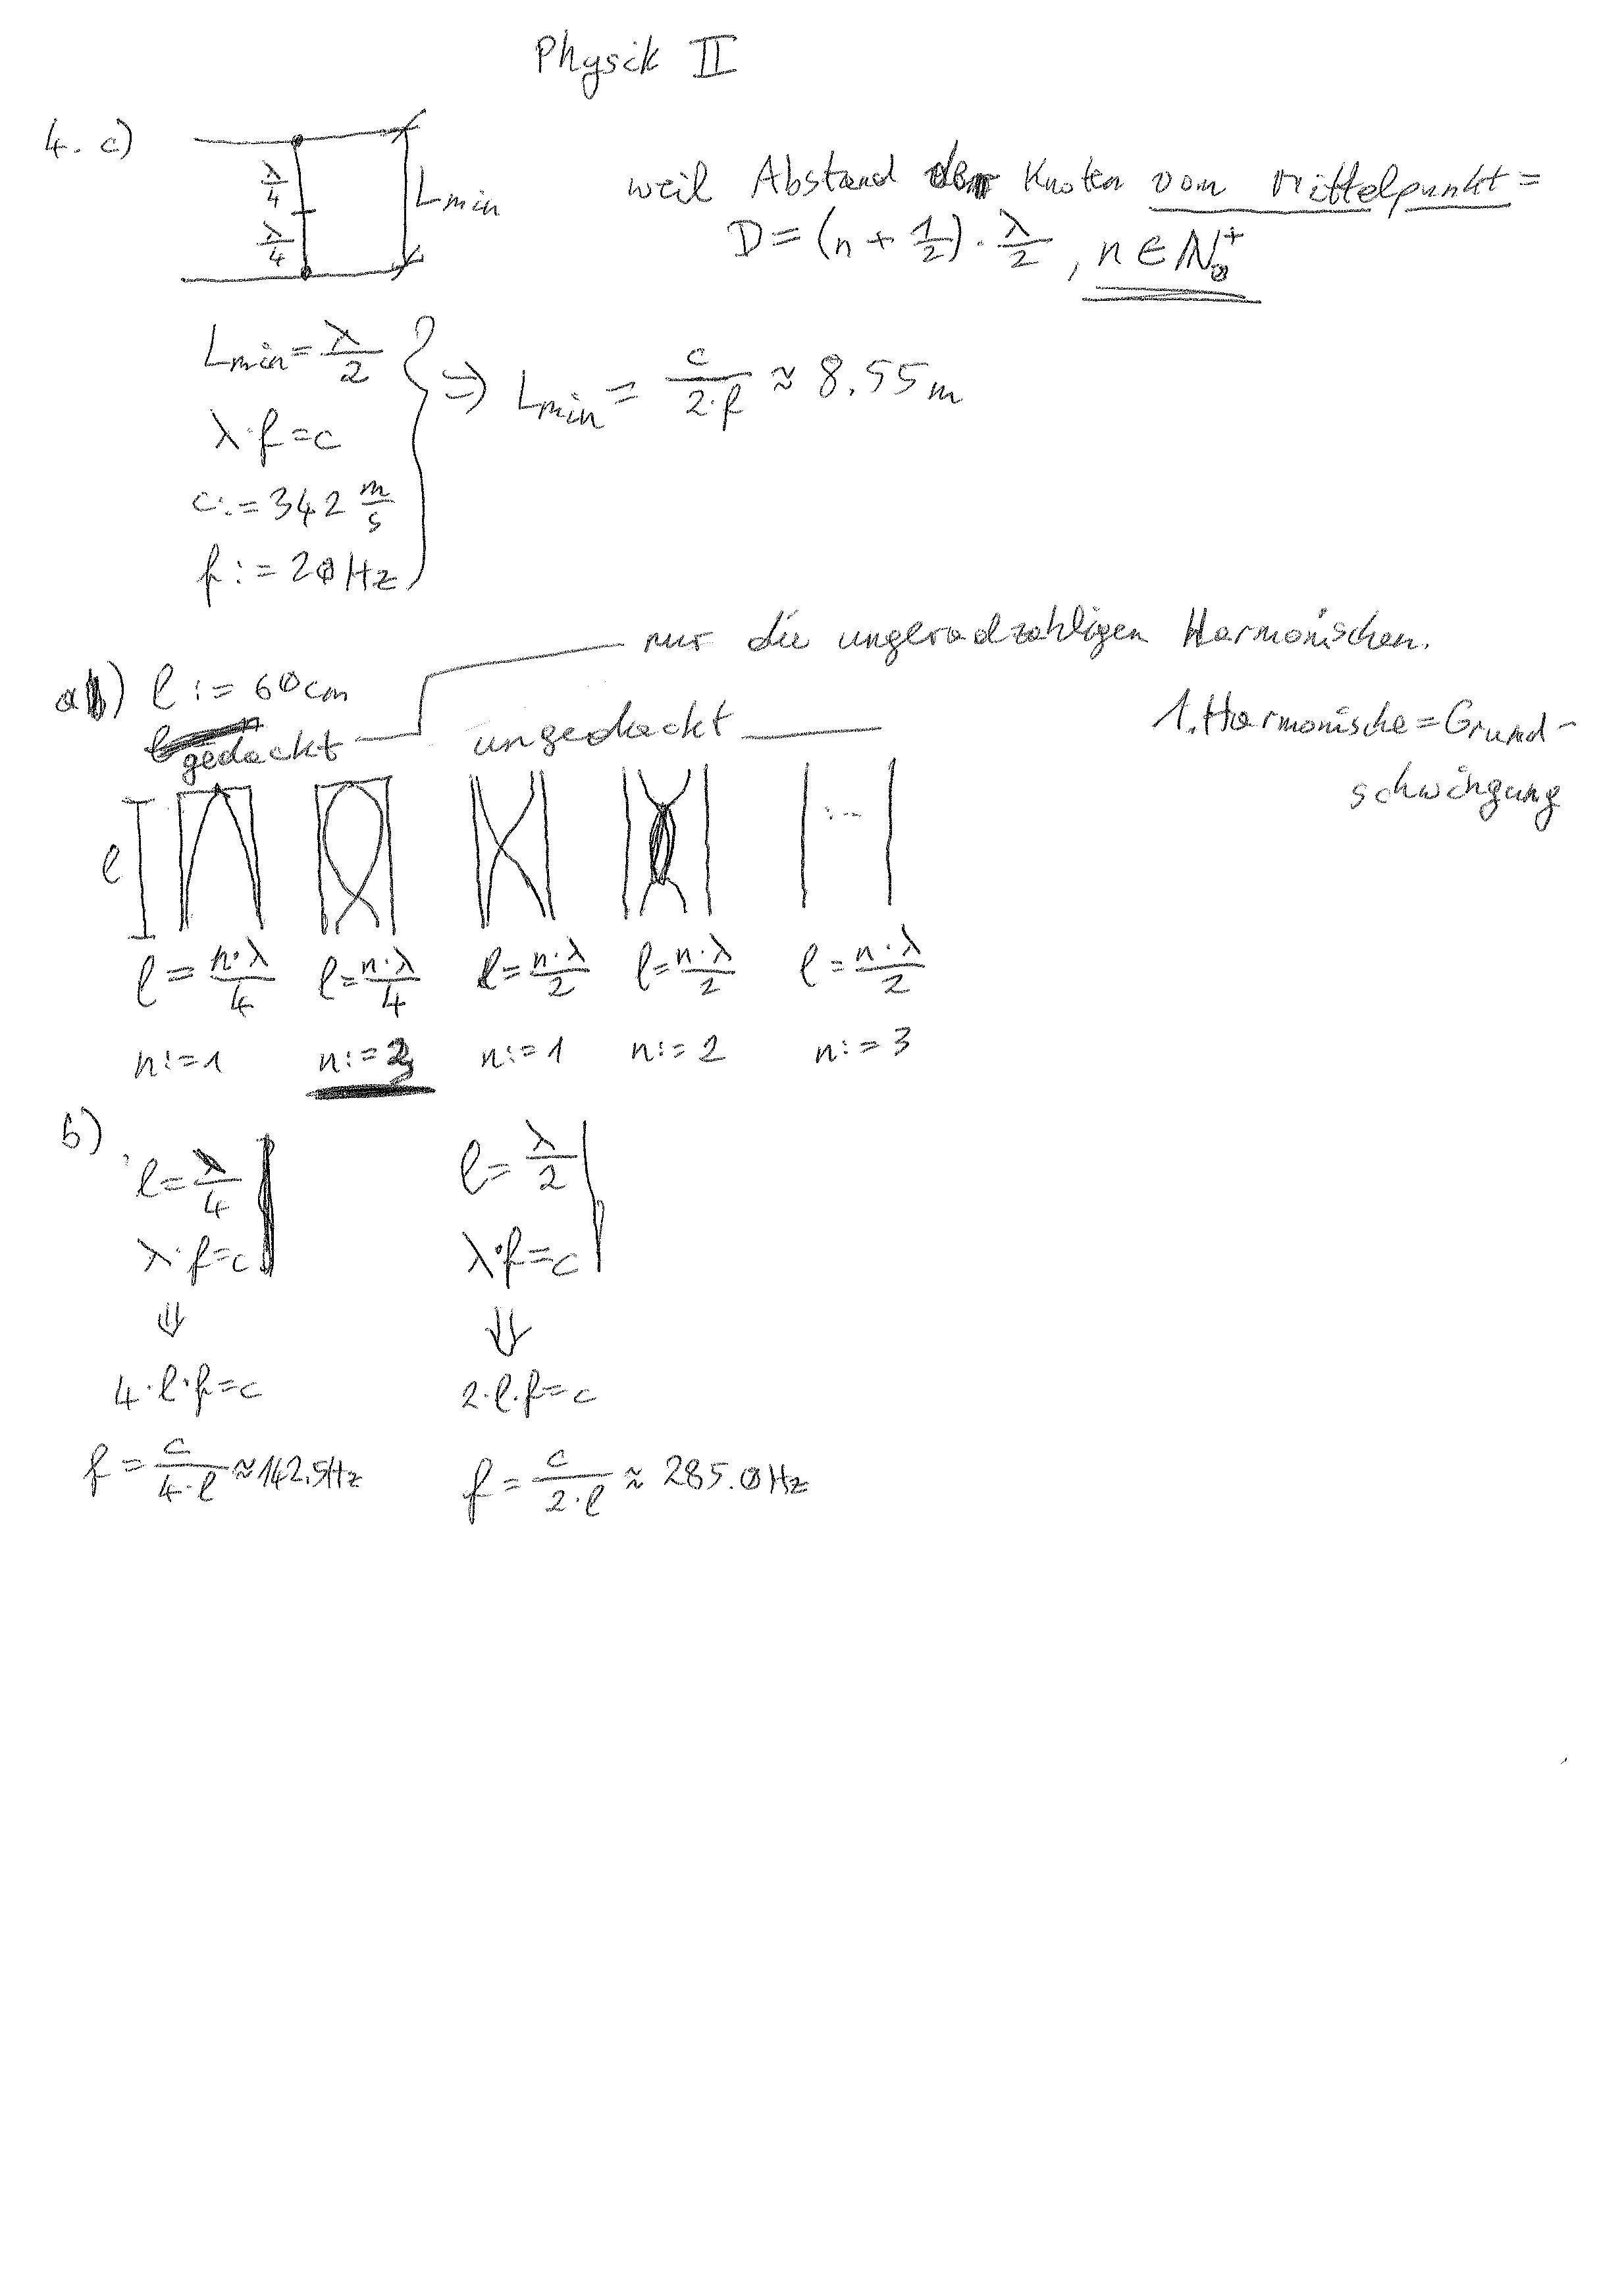 Physik II
4. c)
λ/4
λ/4
Lmin
weil Abstand der Knoten vom Mittelpunkt =
D = (n + 1/2) · λ/2 , n ∈ ℕ₀⁺
Lmin = λ/2
λ·f = c
c := 342 m/s
f := 20 Hz
⇒ Lmin = c/(2·f) ≈ 8.55 m
nur die ungeradzahligen Harmonischen.
a) l := 60 cm
1. Harmonische = Grund-
schwingung
gedackt
ungedackt
l
...
l = n·λ/4
l = n·λ/4
l = n·λ/2
l = n·λ/2
l = n·λ/2
n := 1
n := 3
n := 1
n := 2
n := 3
b)
l = λ/4
λ·f = c
⇓
4·l·f = c
f = c/(4·l) ≈ 142.5 Hz
l = λ/2
λ·f = c
⇓
2·l·f = c
f = c/(2·l) ≈ 285.0 Hz